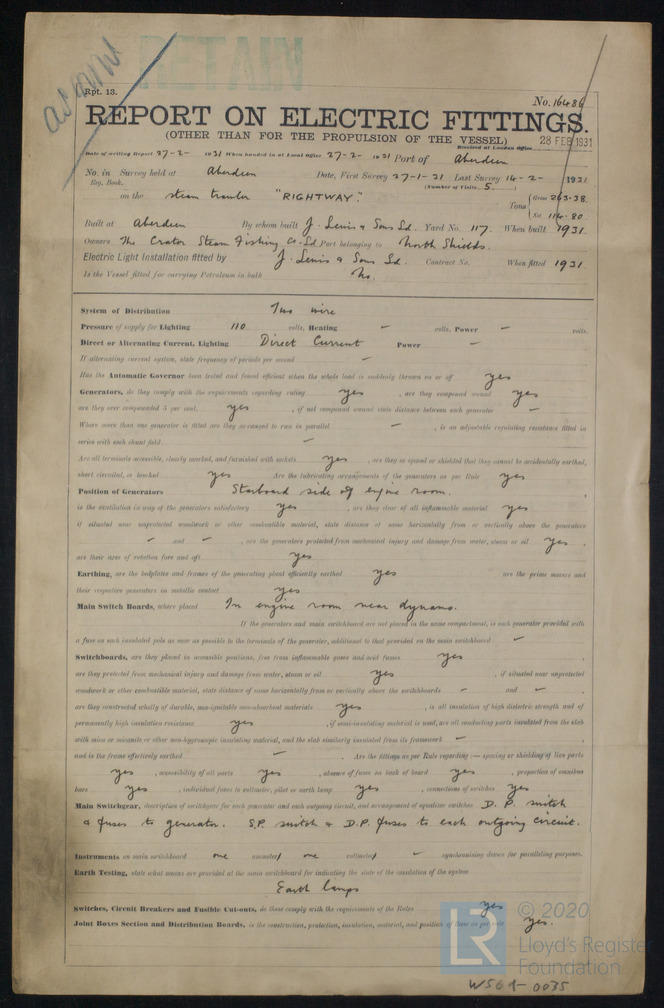 RETAIN
Rpt. 13.
No. 16486
REPORT ON ELECTRIC FITTINGS.
(OTHER THAN FOR THE PROPULSION OF THE VESSEL)
Received at London Office 28 FEB 1931
Date of writing Report 27-2- 1931 When handed in at Local Office 27-2- 1931 Port of Aberdeen
No. in Survey held at Aberdeen Date, First Survey 27-1-31 Last Survey 14-2- 1931
Reg. Book. (Number of Visits 5)
on the steam trawler "RIGHTWAY." Tons { Gross 263.38
Net 114.80
Built at Aberdeen By whom built J. Lewis & Sons Ld. Yard No. 117. When built 1931.
Owners The Crator Steam Fishing Co. Ld. Port belonging to North Shields.
Electric Light Installation fitted by J. Lewis & Sons Ld. Contract No. When fitted 1931.
Is the Vessel fitted for carrying Petroleum in bulk No.
System of Distribution Two wire
Pressure of supply for Lighting 110 volts, Heating - volts, Power - volts.
Direct or Alternating Current, Lighting Direct Current Power -
If alternating current system, state frequency of periods per second -
Has the Automatic Governor been tested and found efficient when the whole load is suddenly thrown on or off yes
Generators, do they comply with the requirements regarding rating yes , are they compound wound yes
are they over compounded 5 per cent. yes , if not compound wound state distance between each generator -
Where more than one generator is fitted are they arranged to run in parallel - , is an adjustable regulating resistance fitted in
series with each shunt field -
Are all terminals accessible, clearly marked, and furnished with sockets yes , are they so spaced or shielded that they cannot be accidentally earthed,
short circuited, or touched yes Are the lubricating arrangements of the generators as per Rule yes
Position of Generators Starboard side of engine room.
is the ventilation in way of the generators satisfactory yes , are they clear of all inflammable material yes
if situated near unprotected woodwork or other combustible material, state distance of same horizontally from or vertically above the generators
- and - , are the generators protected from mechanical injury and damage from water, steam or oil yes .
are their axes of rotation fore and aft yes
Earthing, are the bedplates and frames of the generating plant efficiently earthed yes are the prime movers and
their respective generators in metallic contact yes
Main Switch Boards, where placed In engine room near dynamo.
If the generators and main switchboard are not placed in the same compartment, is each generator provided with
a fuse on each insulated pole as near as possible to the terminals of the generator, additional to that provided on the main switchboard -
Switchboards, are they placed in accessible positions, free from inflammable gases and acid fumes yes ,
are they protected from mechanical injury and damage from water, steam or oil yes , if situated near unprotected
woodwork or other combustible material, state distance of same horizontally from or vertically above the switchboards - and - ,
are they constructed wholly of durable, non-ignitable non-absorbent materials yes , is all insulation of high dielectric strength and of
permanently high insulation resistance yes , if semi-insulating material is used, are all conducting parts insulated from the slab
with mica or micanite or other non-hygroscopic insulating material, and the slab similarly insulated from its framework - ,
and is the frame effectively earthed - . Are the fittings as per Rule regarding:— spacing or shielding of live parts
yes , accessibility of all parts yes , absence of fuses on back of board yes , proportion of omnibus
bars yes , individual fuses to voltmeter, pilot or earth lamp yes , connections of switches yes
Main Switchgear, description of switchgear for each generator and each outgoing circuit, and arrangement of equalizer switches D.P. switch
& fuses to generator. S.P. switch & D.P. fuses to each outgoing circuit.
Instruments on main switchboard one ammeter one voltmeter - synchronising device for paralleling purposes.
Earth Testing, state what means are provided at the main switchboard for indicating the state of the insulation of the system
Earth lamps
Switches, Circuit Breakers and Fusible Cut-outs, do these comply with the requirements of the Rules yes
Joint Boxes Section and Distribution Boards, is the construction, protection, insulation, material, and position of these as per rule yes.
LR © 2020
Lloyd's Register
Foundation
W561-0035